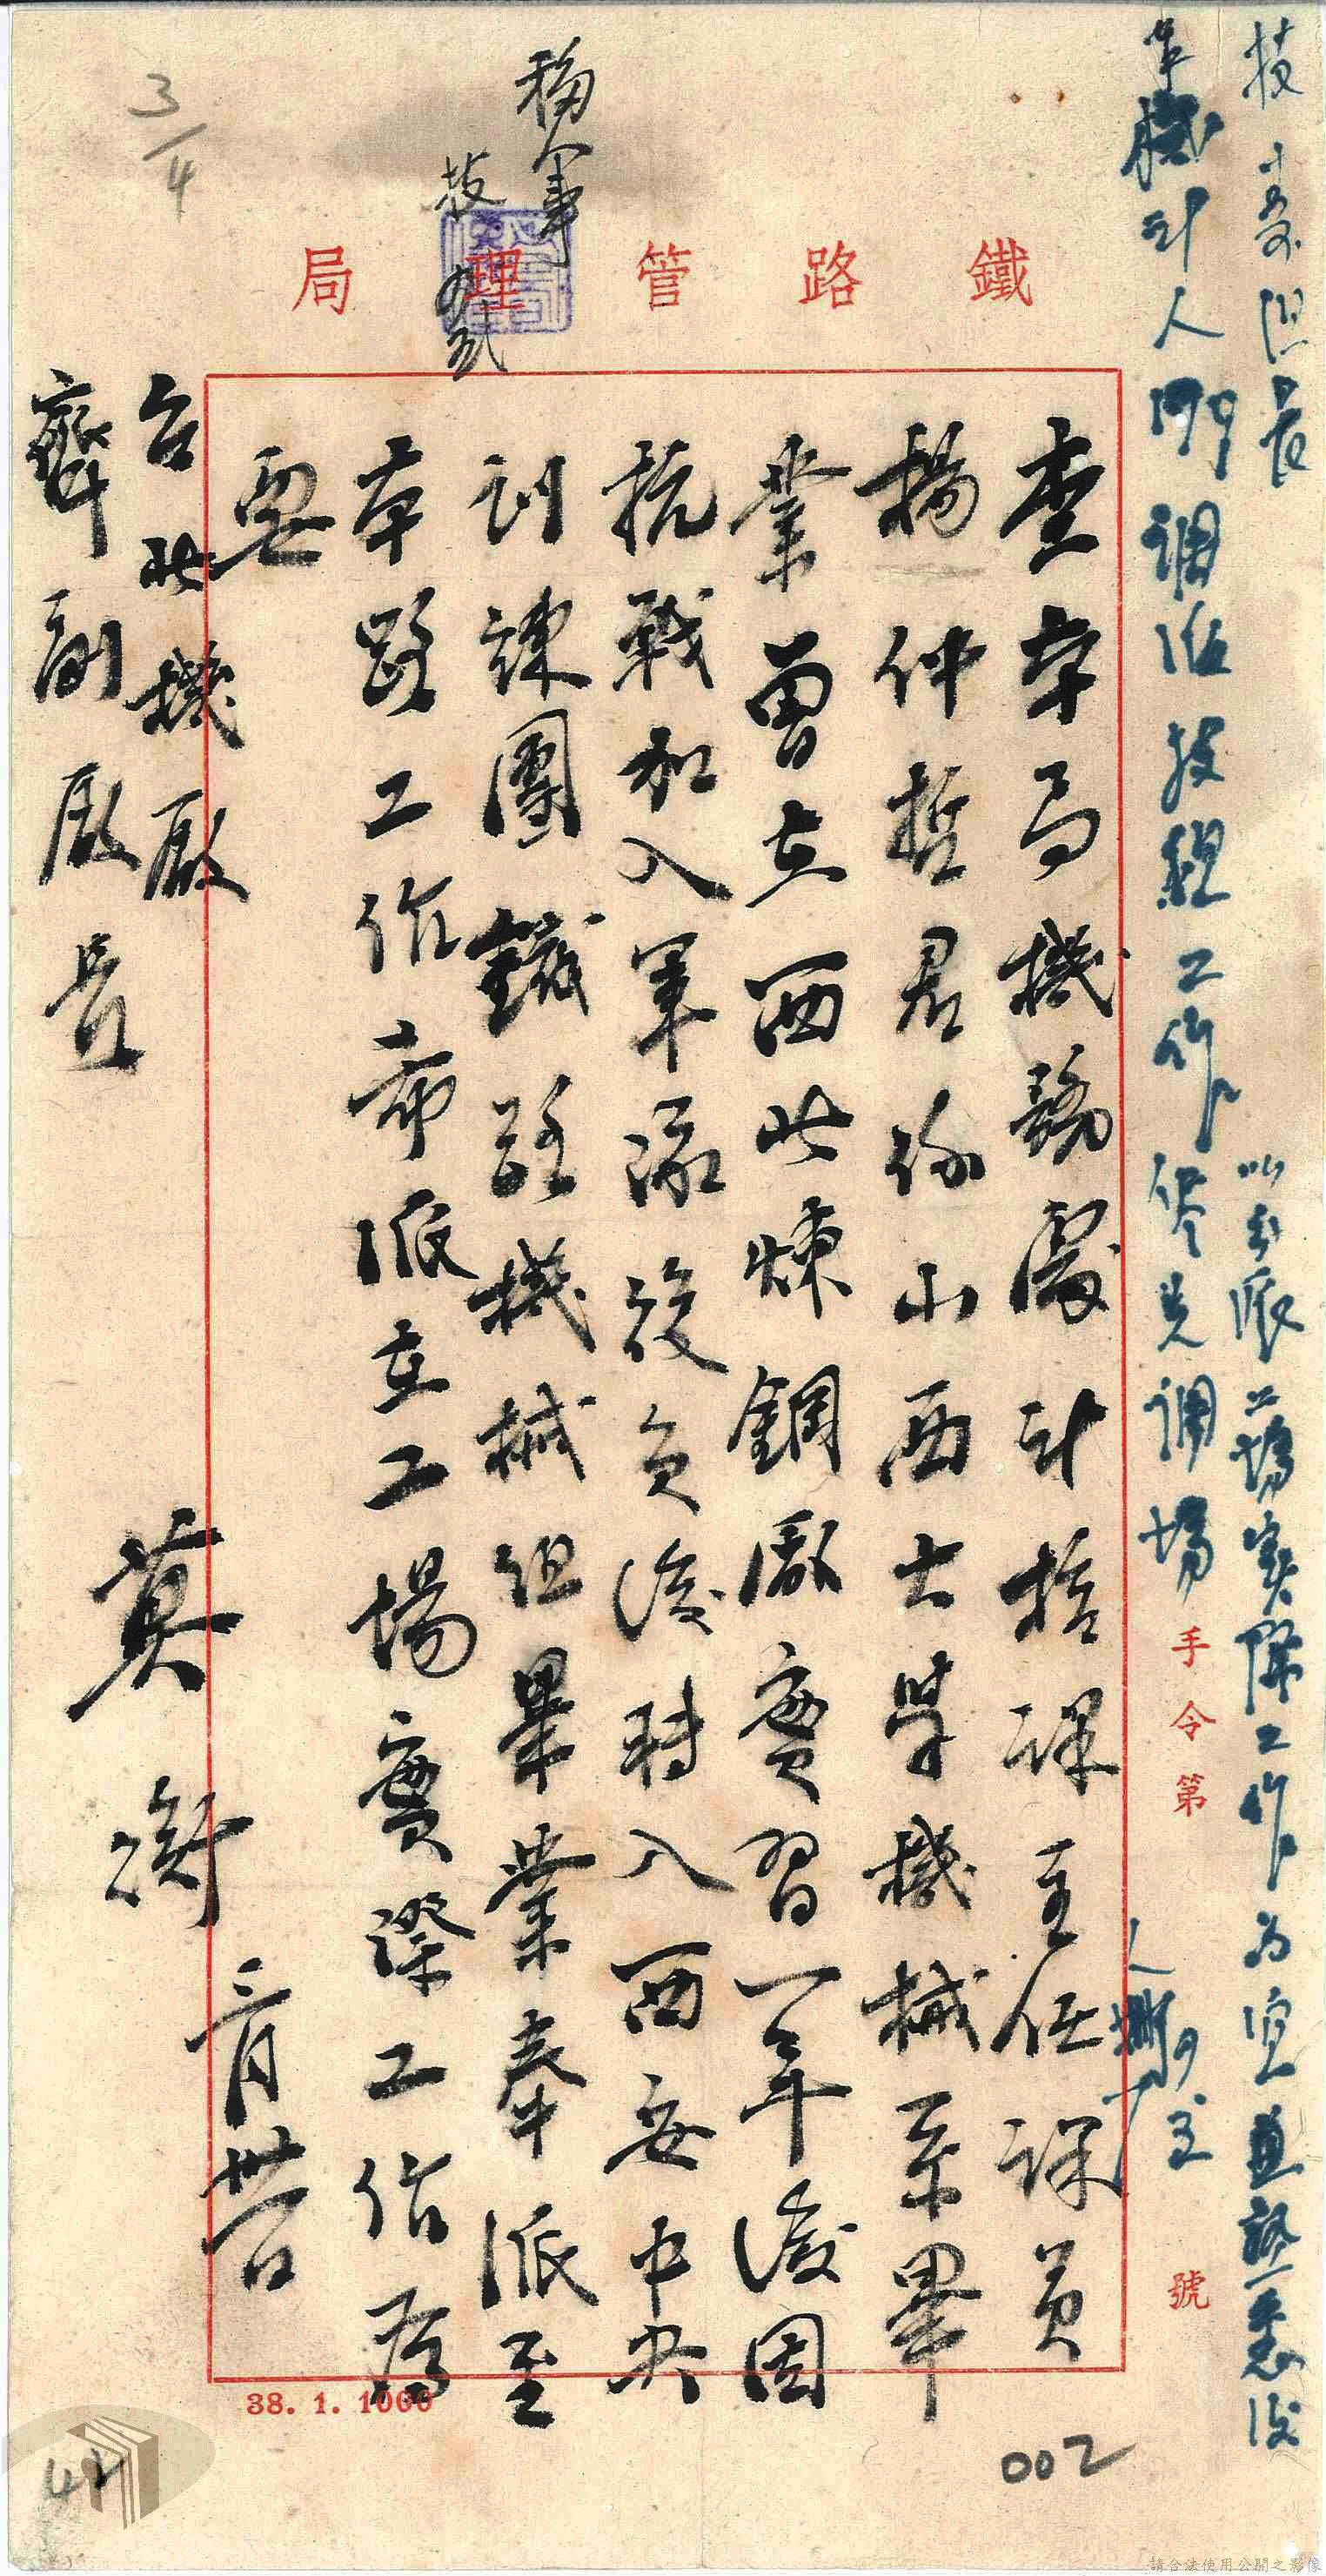 鐵路管理局
手令第 號
查本局機務處計核課主任課員
楊仲哲君係山西大學機械系畢
業曾在西北煉鋼廠實習一年後因
抗戰加入軍旅後負後轉入西安中央
訓練團鐵路機械組畢業奉派至
本路工作希派在工場實際工作為
要
台北機廠
齊副廠長
莫衡
三月廿一日
技 組長
以派工場實際工作為宜並 悉後
調派技組工作 先調場
技
38. 1. 1000
3/4
002
42
請合法使用公開之影像